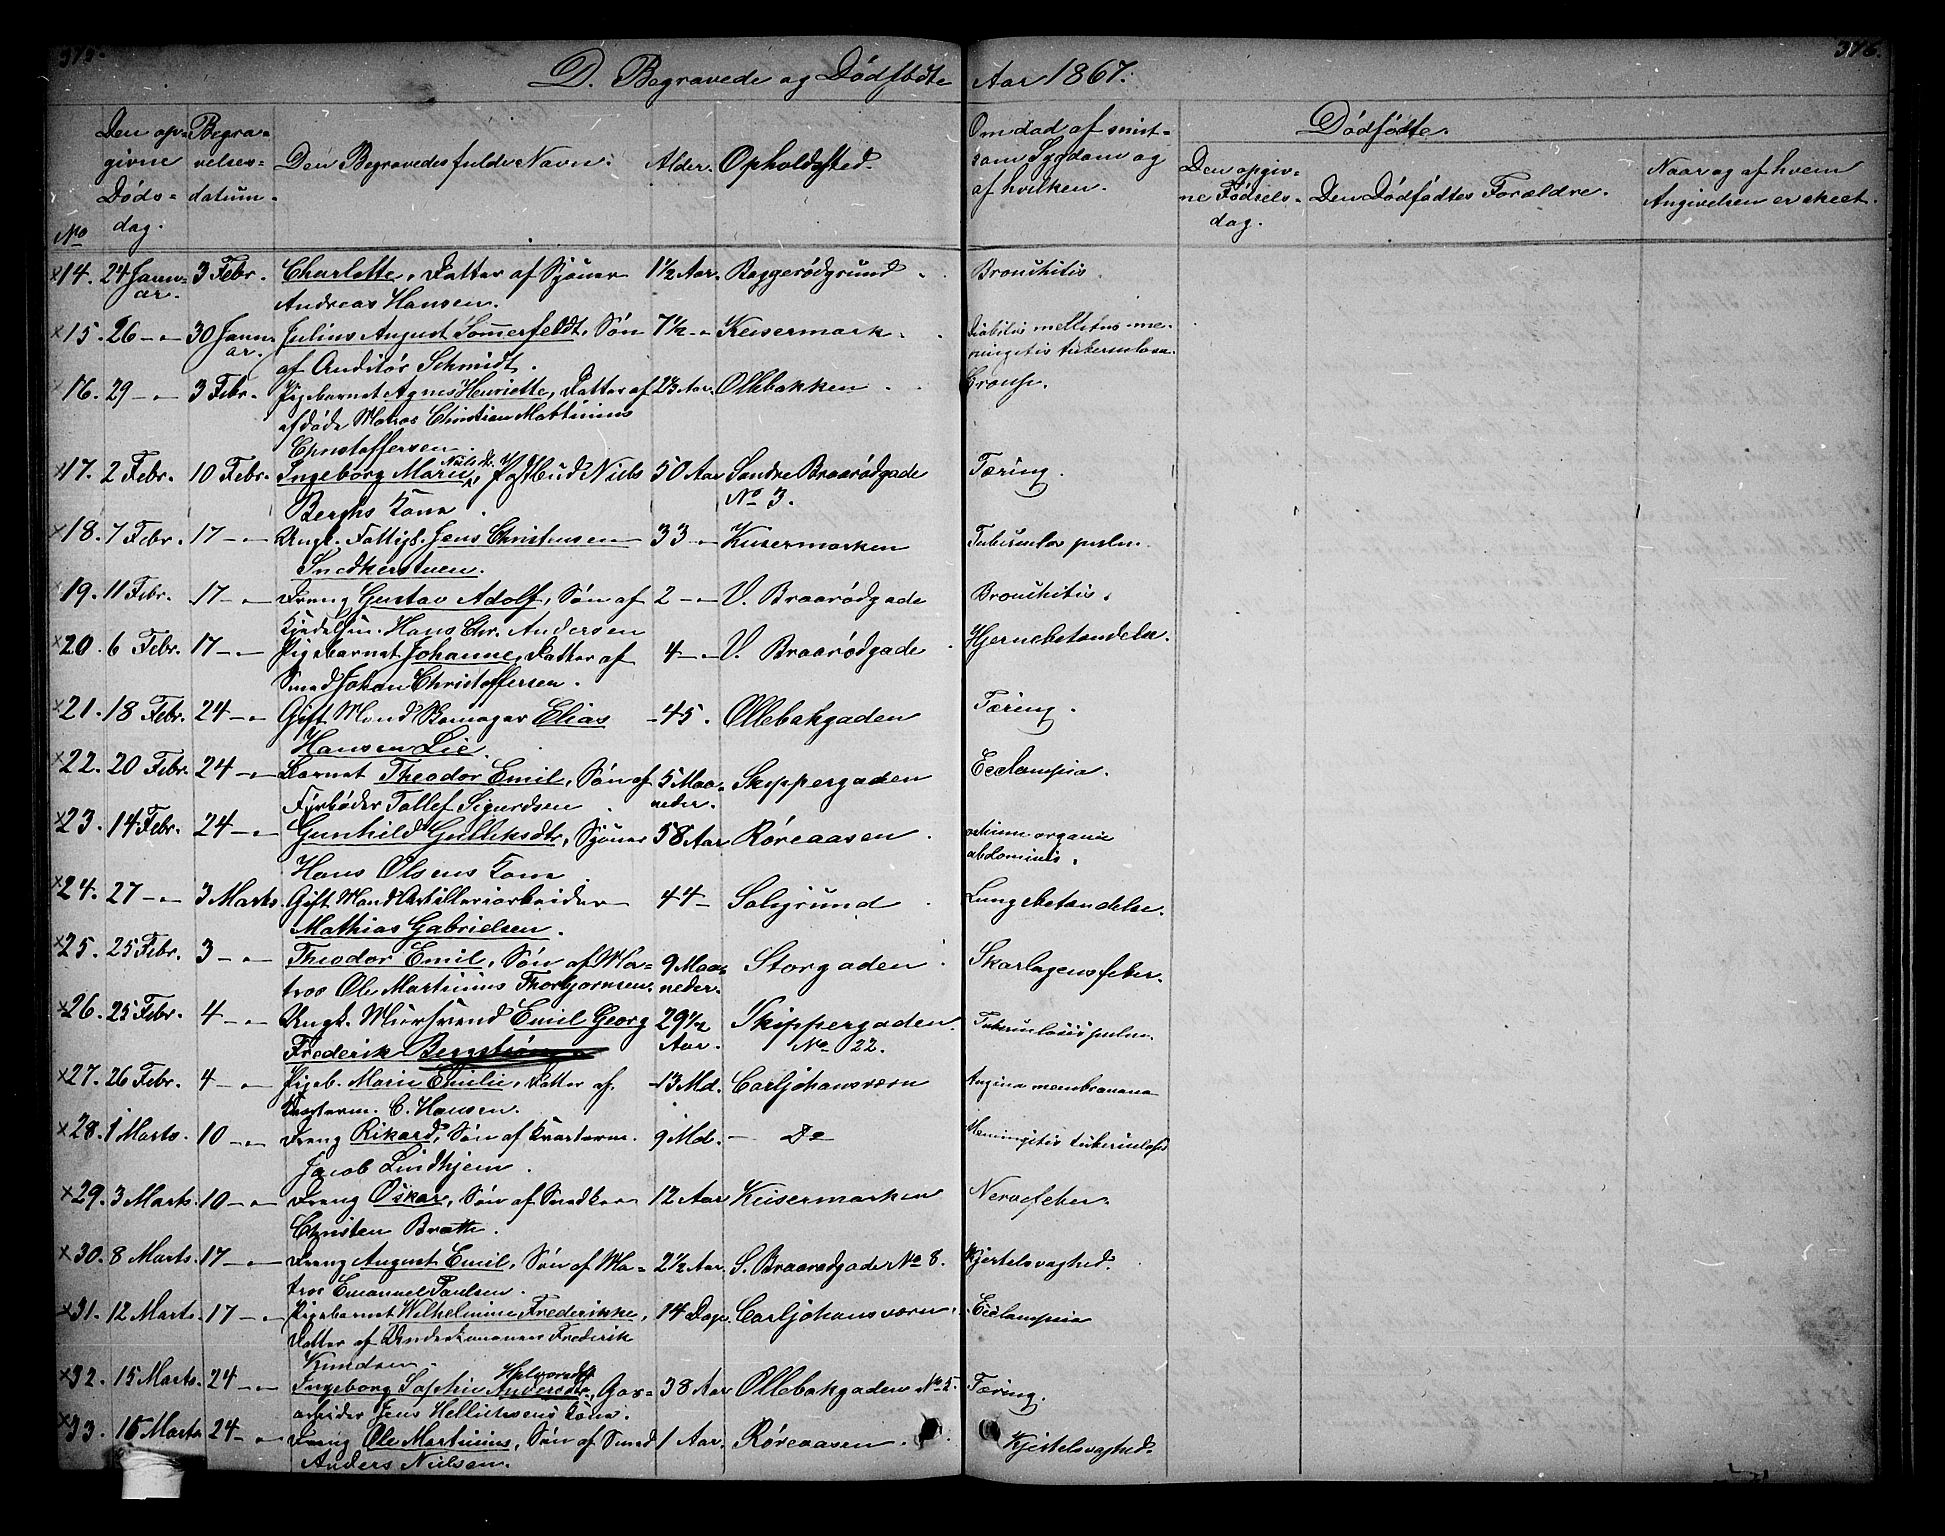 375. 376.
D. Begravede og Dødfødte Aar 1867.
No
Den opgivne Dødsdag.
Begravelsesdatum.
Den Begravedes fulde Navn.
Alder.
Opholdssted.
Om død af smitsom Sygdom og af hvilken.
Dødfødte.
Den opgivne Fødselsdag.
Den Dødfødtes Forældre.
Naar og af hvem Angivelsen er skeet.
×14. 24 Januar. 3 Febr. Charlotte, Datter af Sjømand 1½ Aar. Baggerødgrund Bronchitis.
Andreas Hansen.
×15. 26 -"- 30 Januar. Julius August Sommerfeldt, Søn 7½ -"- Keisermark. Diabetes mellitus me-
af Auditør Schmidt. ningitis tuberculosa.
16. 29 -"- 3 Febr. Pigebarnet Agnes Henriette, Datter af 2⅓ Aar. Ollebakken. Croup.
afdøde Matros Christian Mathinius
Christoffersen.
×17. 2 Febr. 10 Febr. Ingeborg Marie Nilsdr., Postbud Niels 50 Aar Søndre Braarødgade Tæring.
Berghs Kone. No 3.
×18. 7 Febr. 17 -"- Ungk. Fattigl. Jens Christensen 33 -"- Keisermarken Tuberculos pulm.
Snedkerstuen.
19. 11 Febr. 17 -"- Dreng Gustav Adolf, Søn af 2 -"- V. Braarødgade Bronchitis.
Hans Chr. Andersen
×20. 6 Febr. 17 -"- Pigebarnet Johanne, Datter af 4 -"- V. Braarødgade Hjernebetændelse.
Smed Johan Christoffersen.
×21. 18 Febr. 24 -"- Gift Mand Skomager Elias 45. Ollebakgaden Tæring.
Hansen Lie.
×22. 20 Febr. 24 -"- Barnet Theodor Emil, Søn af 5 Maa- Skippergaden Eclampsia.
Fyrbøder Tollef Sigurdsen neder.
×23. 14 Febr. 24 -"- Gunhild Gulliksdtr, Sjømand 58 Aar Røreaasen. vitium organic
Hans Olsens Kone abdominis.
×24. 27 -"- 3 Marts. Gift Mand Artilleriarbeider 44 - Soligrund Lungebetændelse.
Mathias Gabrielsen.
×25. 25 Febr. 3 -"- Theodor Emil, Søn af Ma- 9 Maa- Storgaden Skarlagensfeber.
tros Ole Martinius Thorbjørnsen. neder.
×26. 25 Febr. 4 -"- Ungk. Muursvend Emil Georg 29½ Skippergaden. Tuberculosis pulm.
Frederik Bergstrøm Aar. No 22.
×27. 26 Febr. 4 -"- Pigeb. Marie Emilie, Datter af 13 Md. Carljohansværn Angina membranacea
Kvarterm. C. Hansen.
×28. 1 Marts. 10 -"- Dreng Rikard, Søn af Kvarterm. 9 Md. - Do Meningitis tuberculosa
Jacob Lindhjem.
×29. 3 Marts. 10 -"- Dreng Oskar, Søn af Snedker 12 Aar Keisermarken Nervefeber.
Christen Bratti.
×30. 8 Marts. 17 -"- Dreng August Emil, Søn af Ma- 2½ Aar. S. Braarødgade No 8. Kjertelsvaghed.
tros Emanuel Paulsen.
×31. 12 Marts. 17 -"- Pigebarnet Wilhelmine Frederikke, 14 Dage. Carljohansværn. Eclampsia
Datter af Underkanoneer Frederik
Knudsen.
×32. 15 Marts. 24 -"- Ingeborg Sophie Andersdtr. Halvorsdtr, Gas- 38 Aar Ollebakgaden No 5. Tæring.
arbeider Jens Hellichsens Kone.
×33. 16 Marts 24 -"- Dreng Ole Martinius, Søn af Smed 1 Aar. Røreaasen. Kjertelsvaghed.
Anders Nielsen.